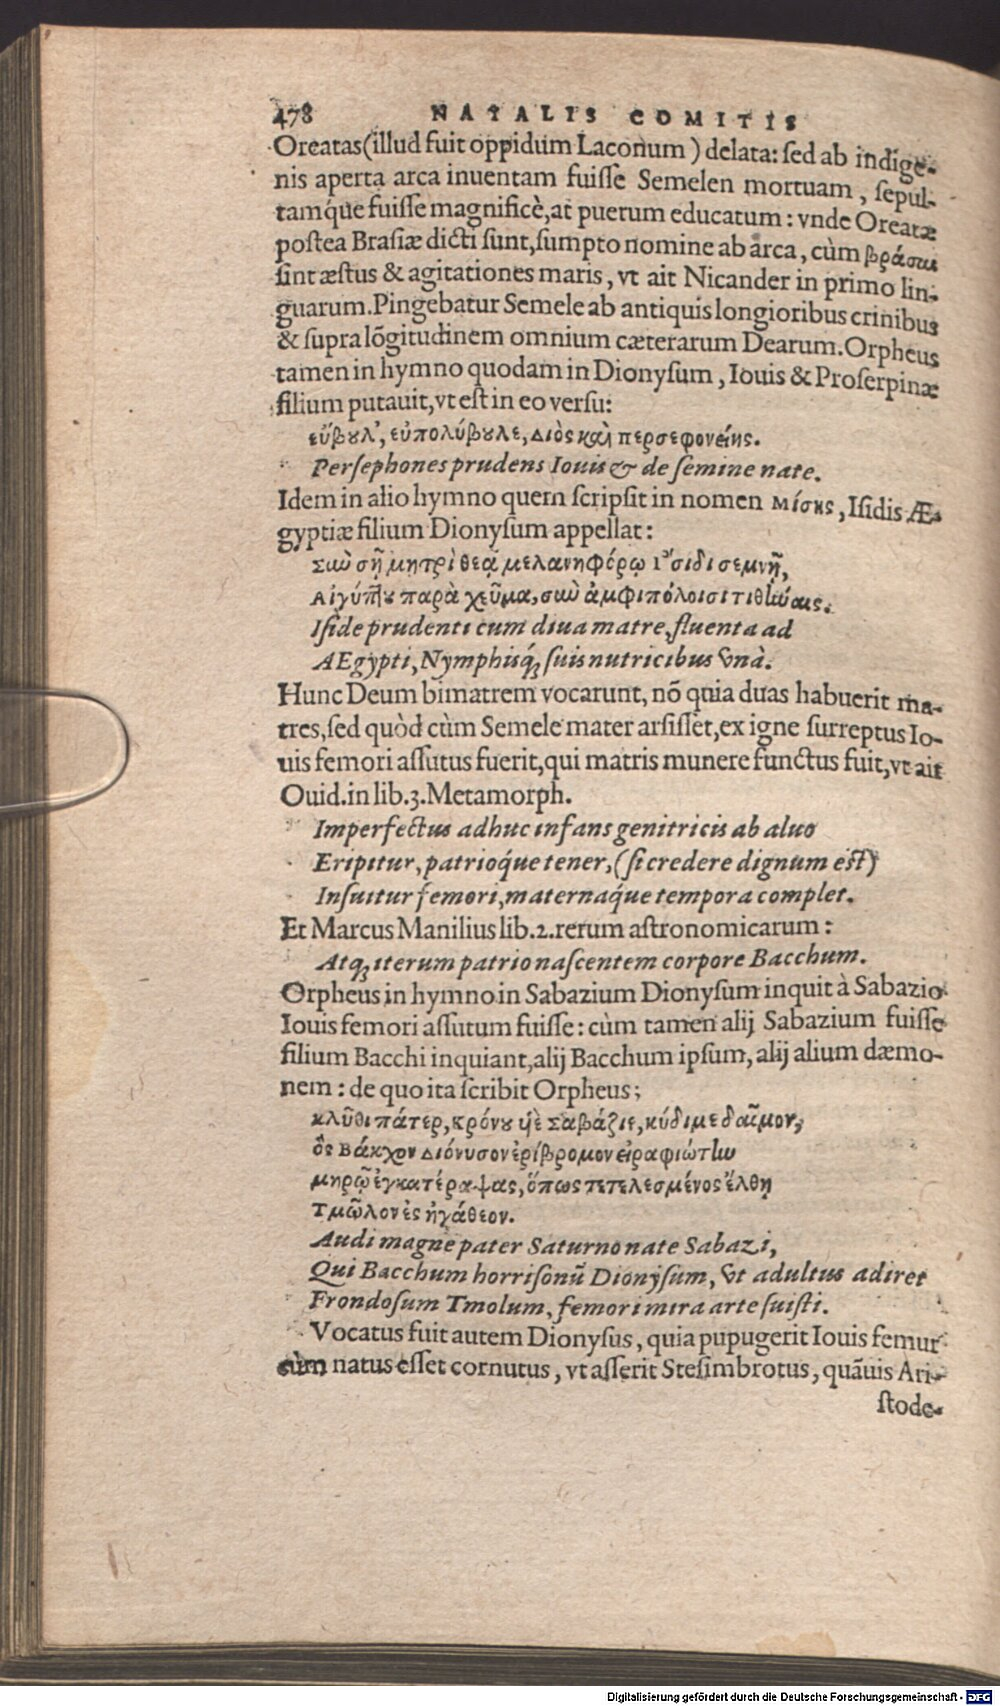 478 NATALIS COMITIS
Oreatas (illud fuit oppidum Laconum) delata: ſed ab indige-
nis aperta arca inuentam fuiſſe Semelen mortuam, ſepul-
tamq́ue fuiſſe magnificè, at puerum educatum: vnde Oreatæ
poſtea Braſiæ dicti ſunt, ſumpto nomine ab arca, cùm βράσαι
ſint æſtus & agitationes maris, vt ait Nicander in primo lin-
guarum. Pingebatur Semele ab antiquis longioribus crinibus
& ſupra lõgitudinem omnium cæterarum Dearum. Orpheus
tamen in hymno quodam in Dionyſum, Iouis & Proſerpinæ
filium putauit, vt eſt in eo verſu:
εὔβȣλ', εὐπολύβȣλε, Διὸς καὶ περσεφονείης.
Perſephones prudens Iouis & de ſemine nate.
Idem in alio hymno quem ſcripſit in nomen Μίσης, Iſidis Æ-
gyptiæ filium Dionyſum appellat:
Σὺν σῇ μητρὶ θεᾷ μελανηφόρῳ Ἴσιδι σεμνῇ,
Αἰγύπτȣ παρὰ χεῦμα, σὺν ἀμφιπόλοισι τιθήναις.
Iſide prudenti cum diua matre, fluenta ad
AEgypti, Nymphisq́; ſuis nutricibus vnà.
Hunc Deum bimatrem vocarunt, nõ quia duas habuerit ma-
tres, ſed quòd cùm Semele mater arſiſſet, ex igne ſurreptus Io-
uis femori aſſutus fuerit, qui matris munere functus fuit, vt ait
Ouid. in lib. 3. Metamorph.
Imperfectus adhuc infans genitricis ab aluo
Eripitur, patrioq́ue tener, (ſi credere dignum eſt)
Inſuitur femori, maternaq́ue tempora complet.
Et Marcus Manilius lib. 2. rerum aſtronomicarum:
Atq; iterum patrio naſcentem corpore Bacchum.
Orpheus in hymno in Sabazium Dionyſum inquit à Sabazio
Iouis femori aſſutum fuiſſe: cùm tamen alij Sabazium fuiſſe
filium Bacchi inquiant, alij Bacchum ipſum, alij alium dæmo-
nem: de quo ita ſcribit Orpheus;
κλῦθι πάτερ, κρόνȣ υἱὲ Σαβάζιε, κύδιμε δαῖμον,
ὃς Βάκχον Διόνυσον ἐρίβρομον εἰραφιώτην
μηρῷ ἐγκατέραψας, ὅπως τετελεσμένος ἔλθῃ
Τμῶλον ἐς ἠγάθεον.
Audi magne pater Saturno nate Sabazi,
Qui Bacchum horriſonũ Dionyſum, vt adultus adiret
Frondoſum Tmolum, femori mira arte ſuiſti.
Vocatus fuit autem Dionyſus, quia pupugerit Iouis femur
cùm natus eſſet cornutus, vt aſſerit Steſimbrotus, quãuis Ari-
ſtode-
Digitalisierung gefördert durch die Deutsche Forschungsgemeinschaft - DFG